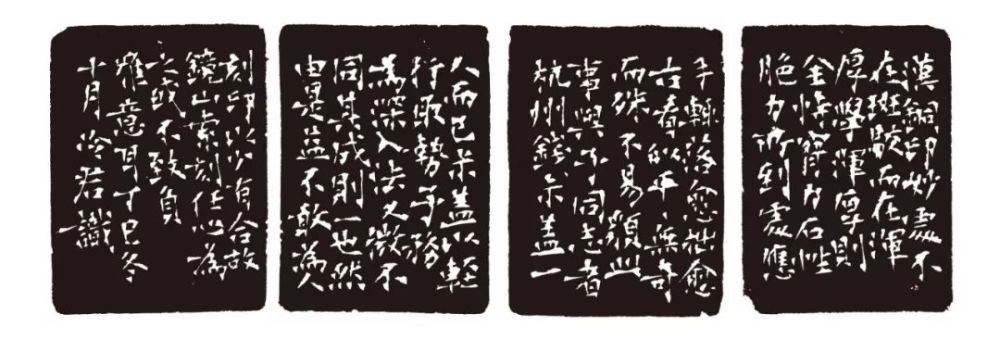 漢銅印妙處不
在斑駁而在渾
厚學渾厚則
全恃腕力石性
脆力所到處應
手輒落愈拙愈
古看似平無奇
而殊不易䫉此
事與予同志者
杭州錢尗蓋一
人而已尗蓋以輕
行取勢予務
爲深入法又微不
同其成則一也然
由是益不敢爲人
刻印以少有合故
鏡山索刻任心爲
之或不致負
雅意耳丁巳冬
十月冷君識